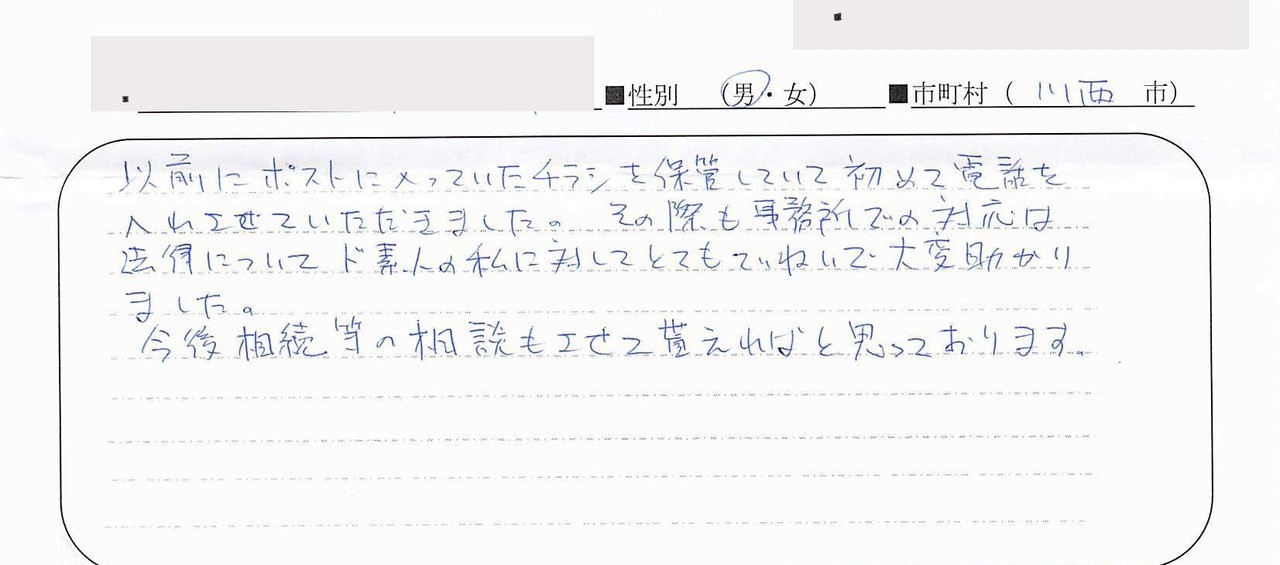 ■性別 (男・女) ■市町村 ( 川西 市)
以前にポストに入っていたチラシを保管していて初めて電話を
入れさせていただきました。 その際も事務所での対応は
法律について ド素人の私に対してとてもていねいで大変助かり
ました。
今後相続等の相談もさせて貰えればと思っております。